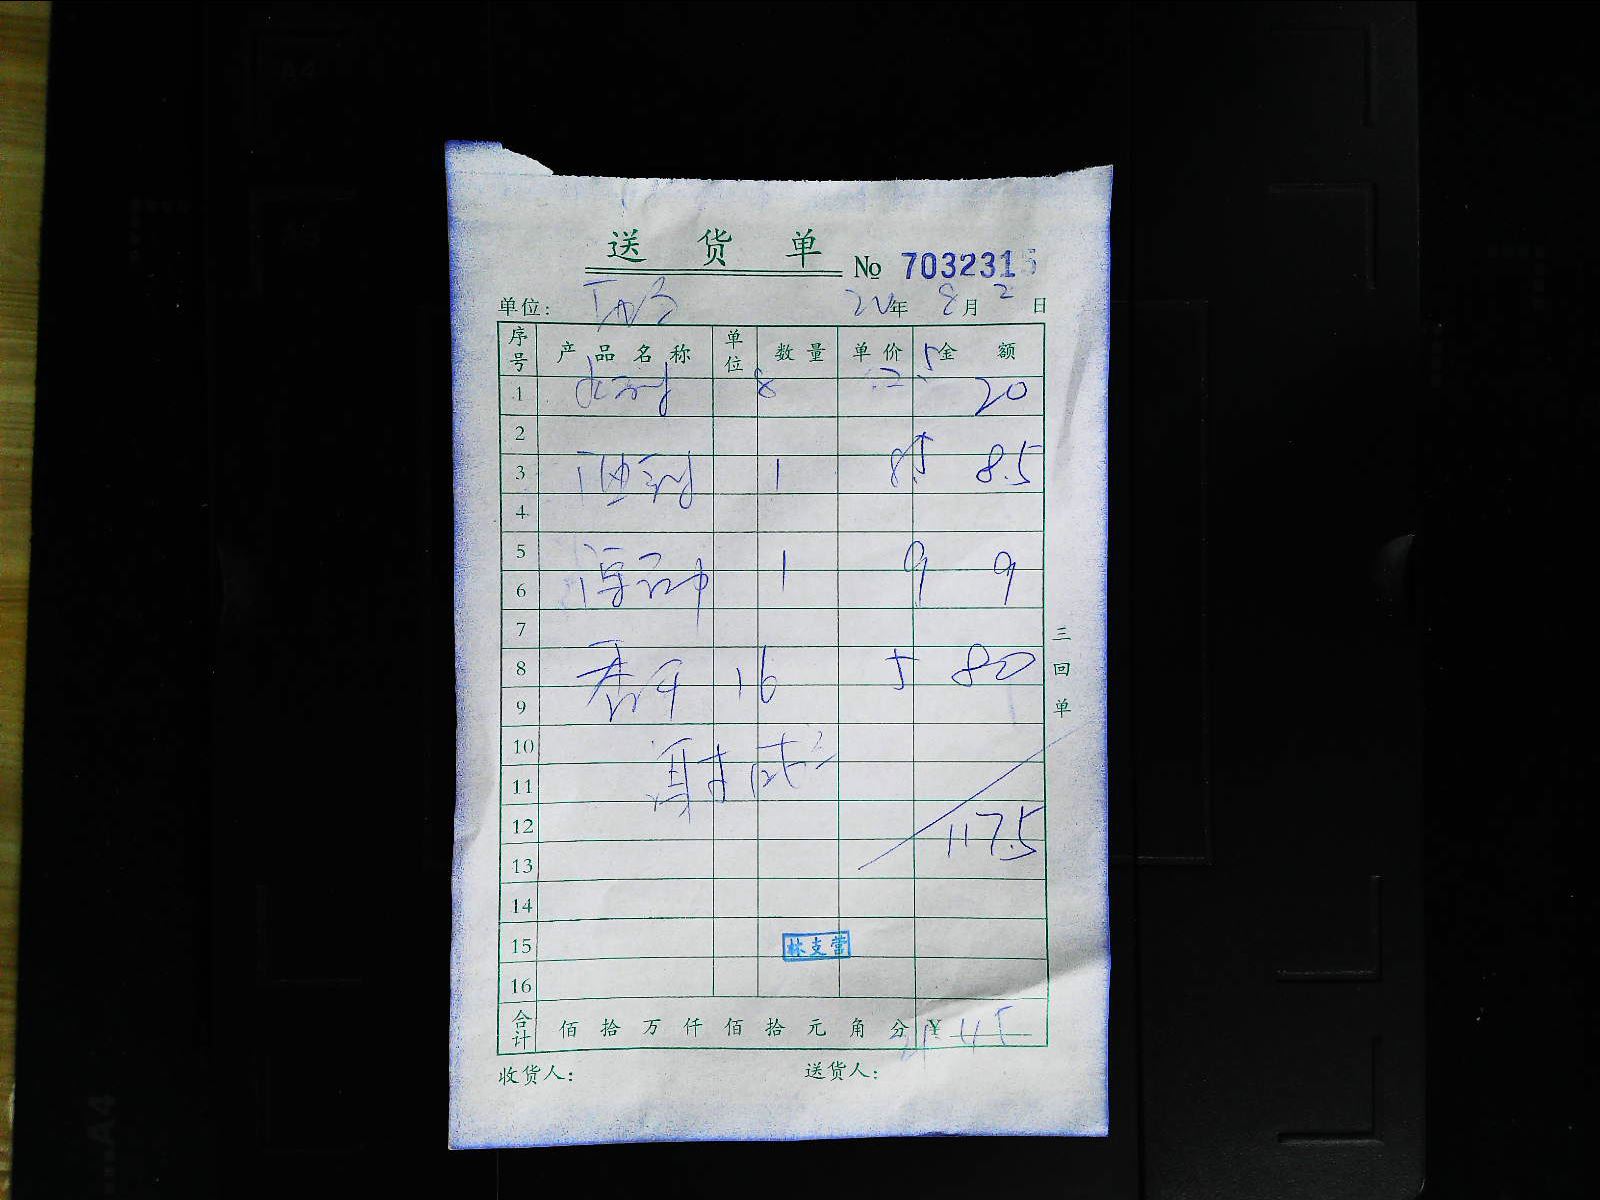 送 货 单
No 7032315
单位: 年 8 月 2 日
序号 产品名称 单位 数量 单价 金额
1 8 2.5 20
2
3 1 8.5 8.5
4
5
6 1 9 9
7
8 香干 16 5 80
9
10
11
12 117.5
13
14
15 林支营
16
合计 佰 拾 万 仟 佰 拾 元 角 分 ¥
收货人: 送货人:
三回单